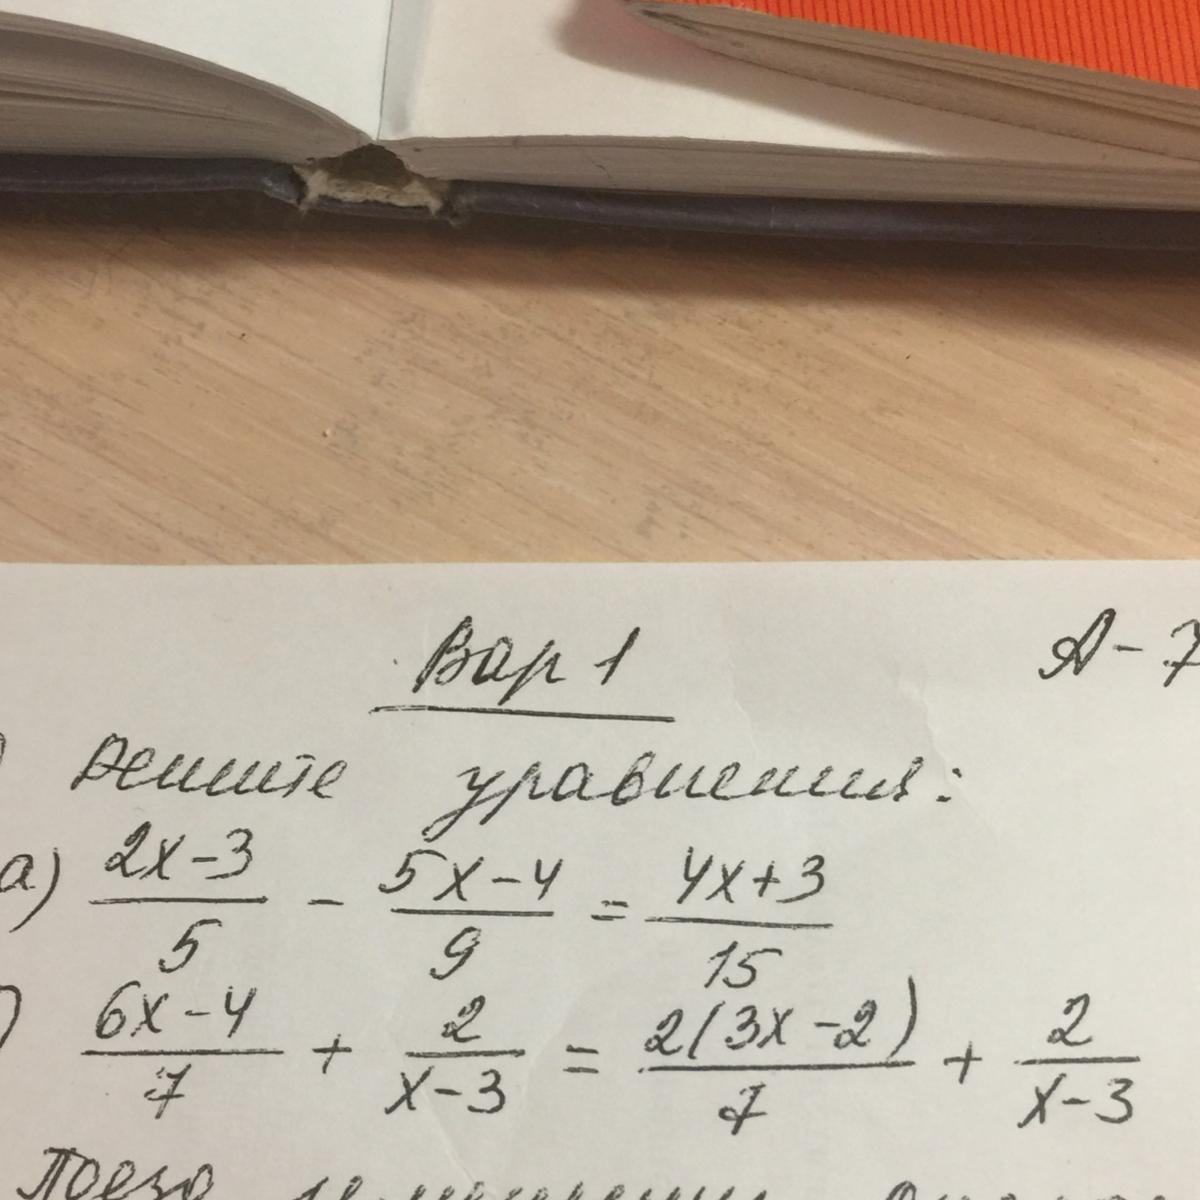 Вар 1
А-7
) Решите уравнения:
а) (2x-3)/5 - (5x-4)/9 = (4x+3)/15
) (6x-4)/7 + 2/(x-3) = 2(3x-2)/7 + 2/(x-3)